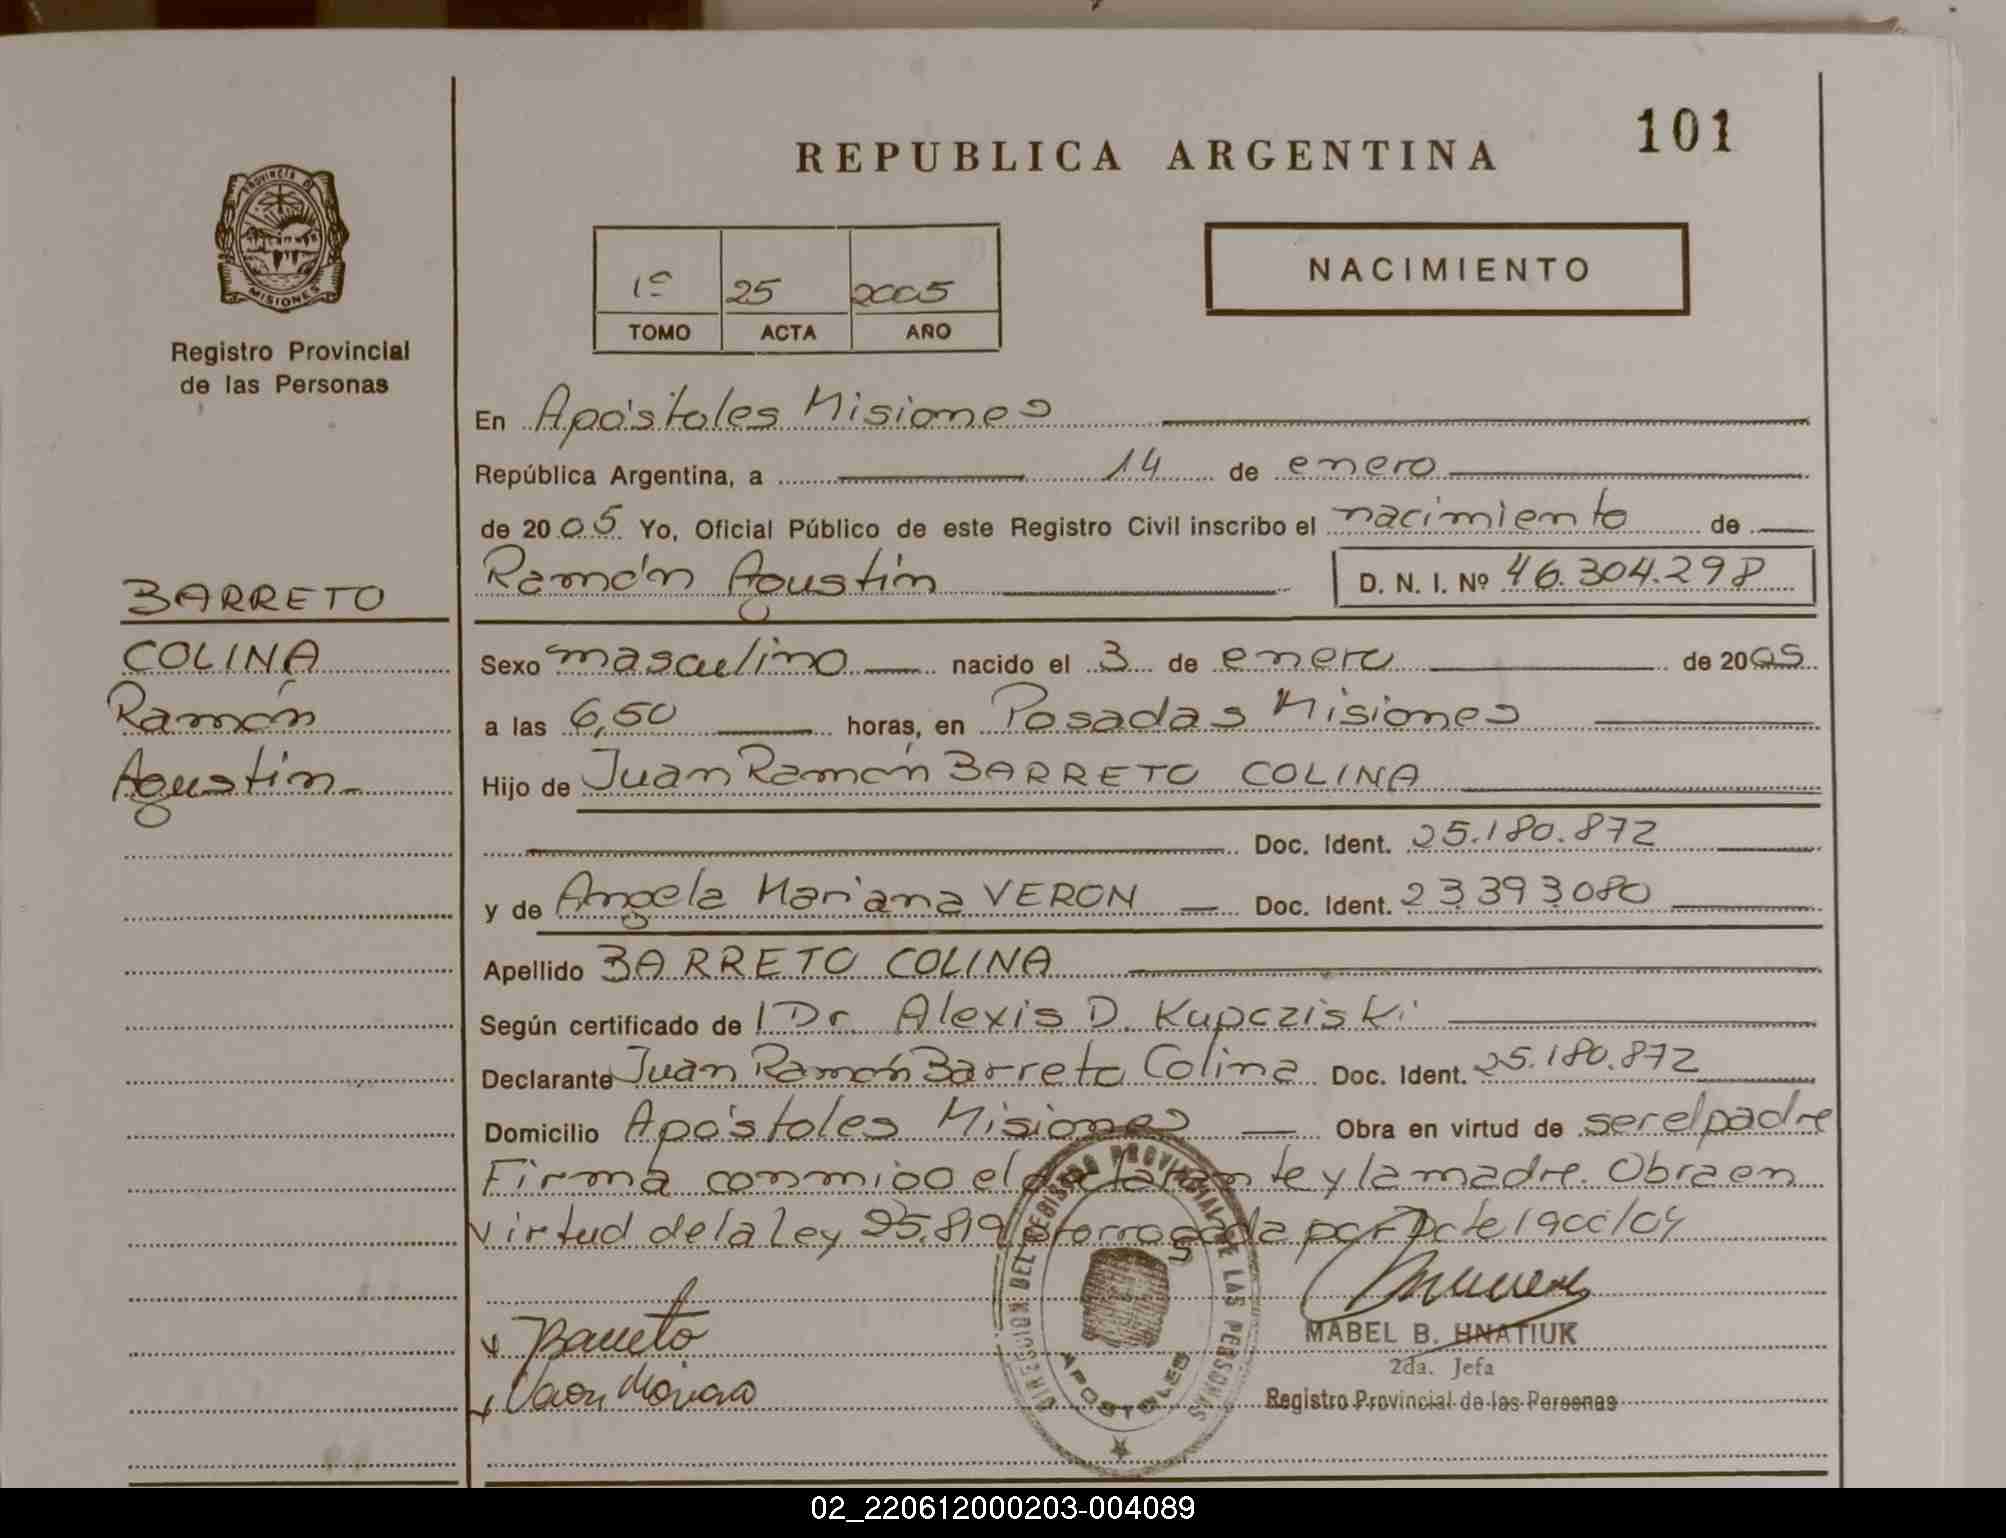 REPUBLICA ARGENTINA
101
PROVINCIA DE
MISIONES
Registro Provincial
de las Personas
1º 25 2005
TOMO ACTA AÑO
NACIMIENTO
En Apóstoles Misiones
República Argentina, a 14 de enero
de 2005 Yo, Oficial Público de este Registro Civil inscribo el nacimiento de
Ramón Agustín D. N. I. Nº 46.304.298
BARRETO
COLINA
Ramón
Agustín
Sexo masculino nacido el 3 de enero de 2005
a las 6,50 horas, en Posadas Misiones
Hijo de Juan Ramón BARRETO COLINA
Doc. Ident. 25.180.872
y de Angela Mariana VERON Doc. Ident. 23.393.080
Apellido BARRETO COLINA
Según certificado de Dr. Alexis D. Kupcziski
Declarante Juan Ramón Barreto Colina Doc. Ident. 25.180.872
Domicilio Apóstoles Misiones Obra en virtud de ser el padre
Firma conmigo el declarante y la madre. Obra en
virtud de la ley 25.819 prorrogada por Dcte 1900/04
Barreto
Veron Mariana
DIRECCION DEL REGISTRO PROVINCIAL DE LAS PERSONAS
APOSTOLES
MABEL B. HNATIUK
2da. Jefa
Registro Provincial de las Personas
02_220612000203-004089